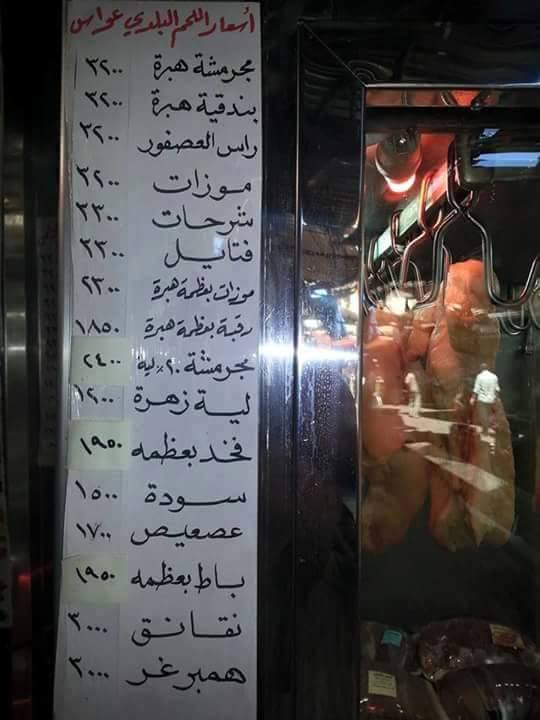 أسعار اللحم البلدي عواس
مجرمشة هبرة ٣٢٠٠
بندقية هبرة ٣٢٠٠
راس العصفور ٣٢٠٠
موزات ٣٢٠٠
شرحات ٣٣٠٠
فتايل ٣٣٠٠
موزات بعظمة هبرة ٢٣٠٠
رقبة بعظمة هبرة ١٨٥٠
مجرمشة ٢٠٪ لية ٢٤٠٠
لية زهرة ١٢٠٠
فخد بعظمه ١٩٥٠
سودة ١٥٠٠
عصعيص ١٧٠٠
باط بعظمه ١٩٥٠
نقانق ٣٠٠٠
همبرغر ٣٠٠٠